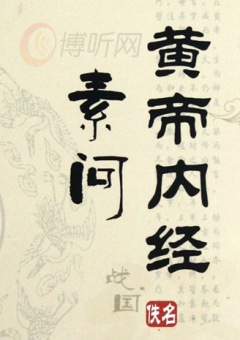 博听网
黄帝内经
素问
战国
佚名